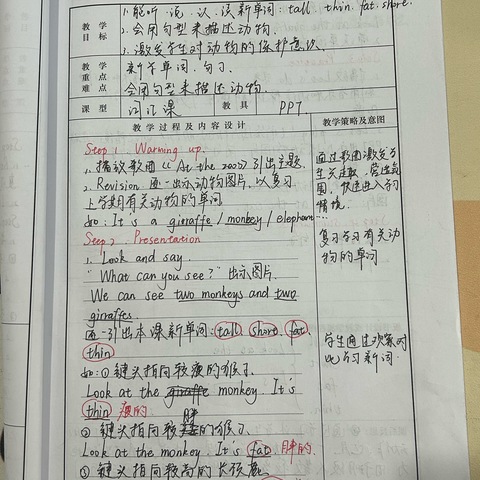 1. 能听、说、认、读新单词: tall, thin, fat, short.
教学
目标
2. 会用句型来描述动物.
3. 激发学生对动物的保护意识.
教学
重点
难点
新单词、句子.
会用句型来描述动物.
课型
词汇课
教具
PPT
教学过程及内容设计
教学策略及意图
Step 1. Warming up.
1. 播放歌曲《At the zoo》引出主题.
2. Revision 逐一出示动物图片, 以复习
上学期有关动物的单词
如: It is a giraffe / monkey / elephant...
Step 2. Presentation
1. Look and say.
"What can you see?" 出示图片.
We can see two monkeys and two
giraffes.
逐一引出本课新单词: tall short fat
thin
如: ① 键头指向较瘦的猴子.
Look at the giraffe monkey. It's
thin 瘦的
胖
② 键头指向较的猴子.
Look at the monkey. It's fat 胖的.
③ 键头指向较高的长颈鹿.
通过歌曲激发学
生关注取, 营造氛
围, 快速进入学习
情境.
复习学习有关动
物的单词
学生通过观察对
比学习新词.